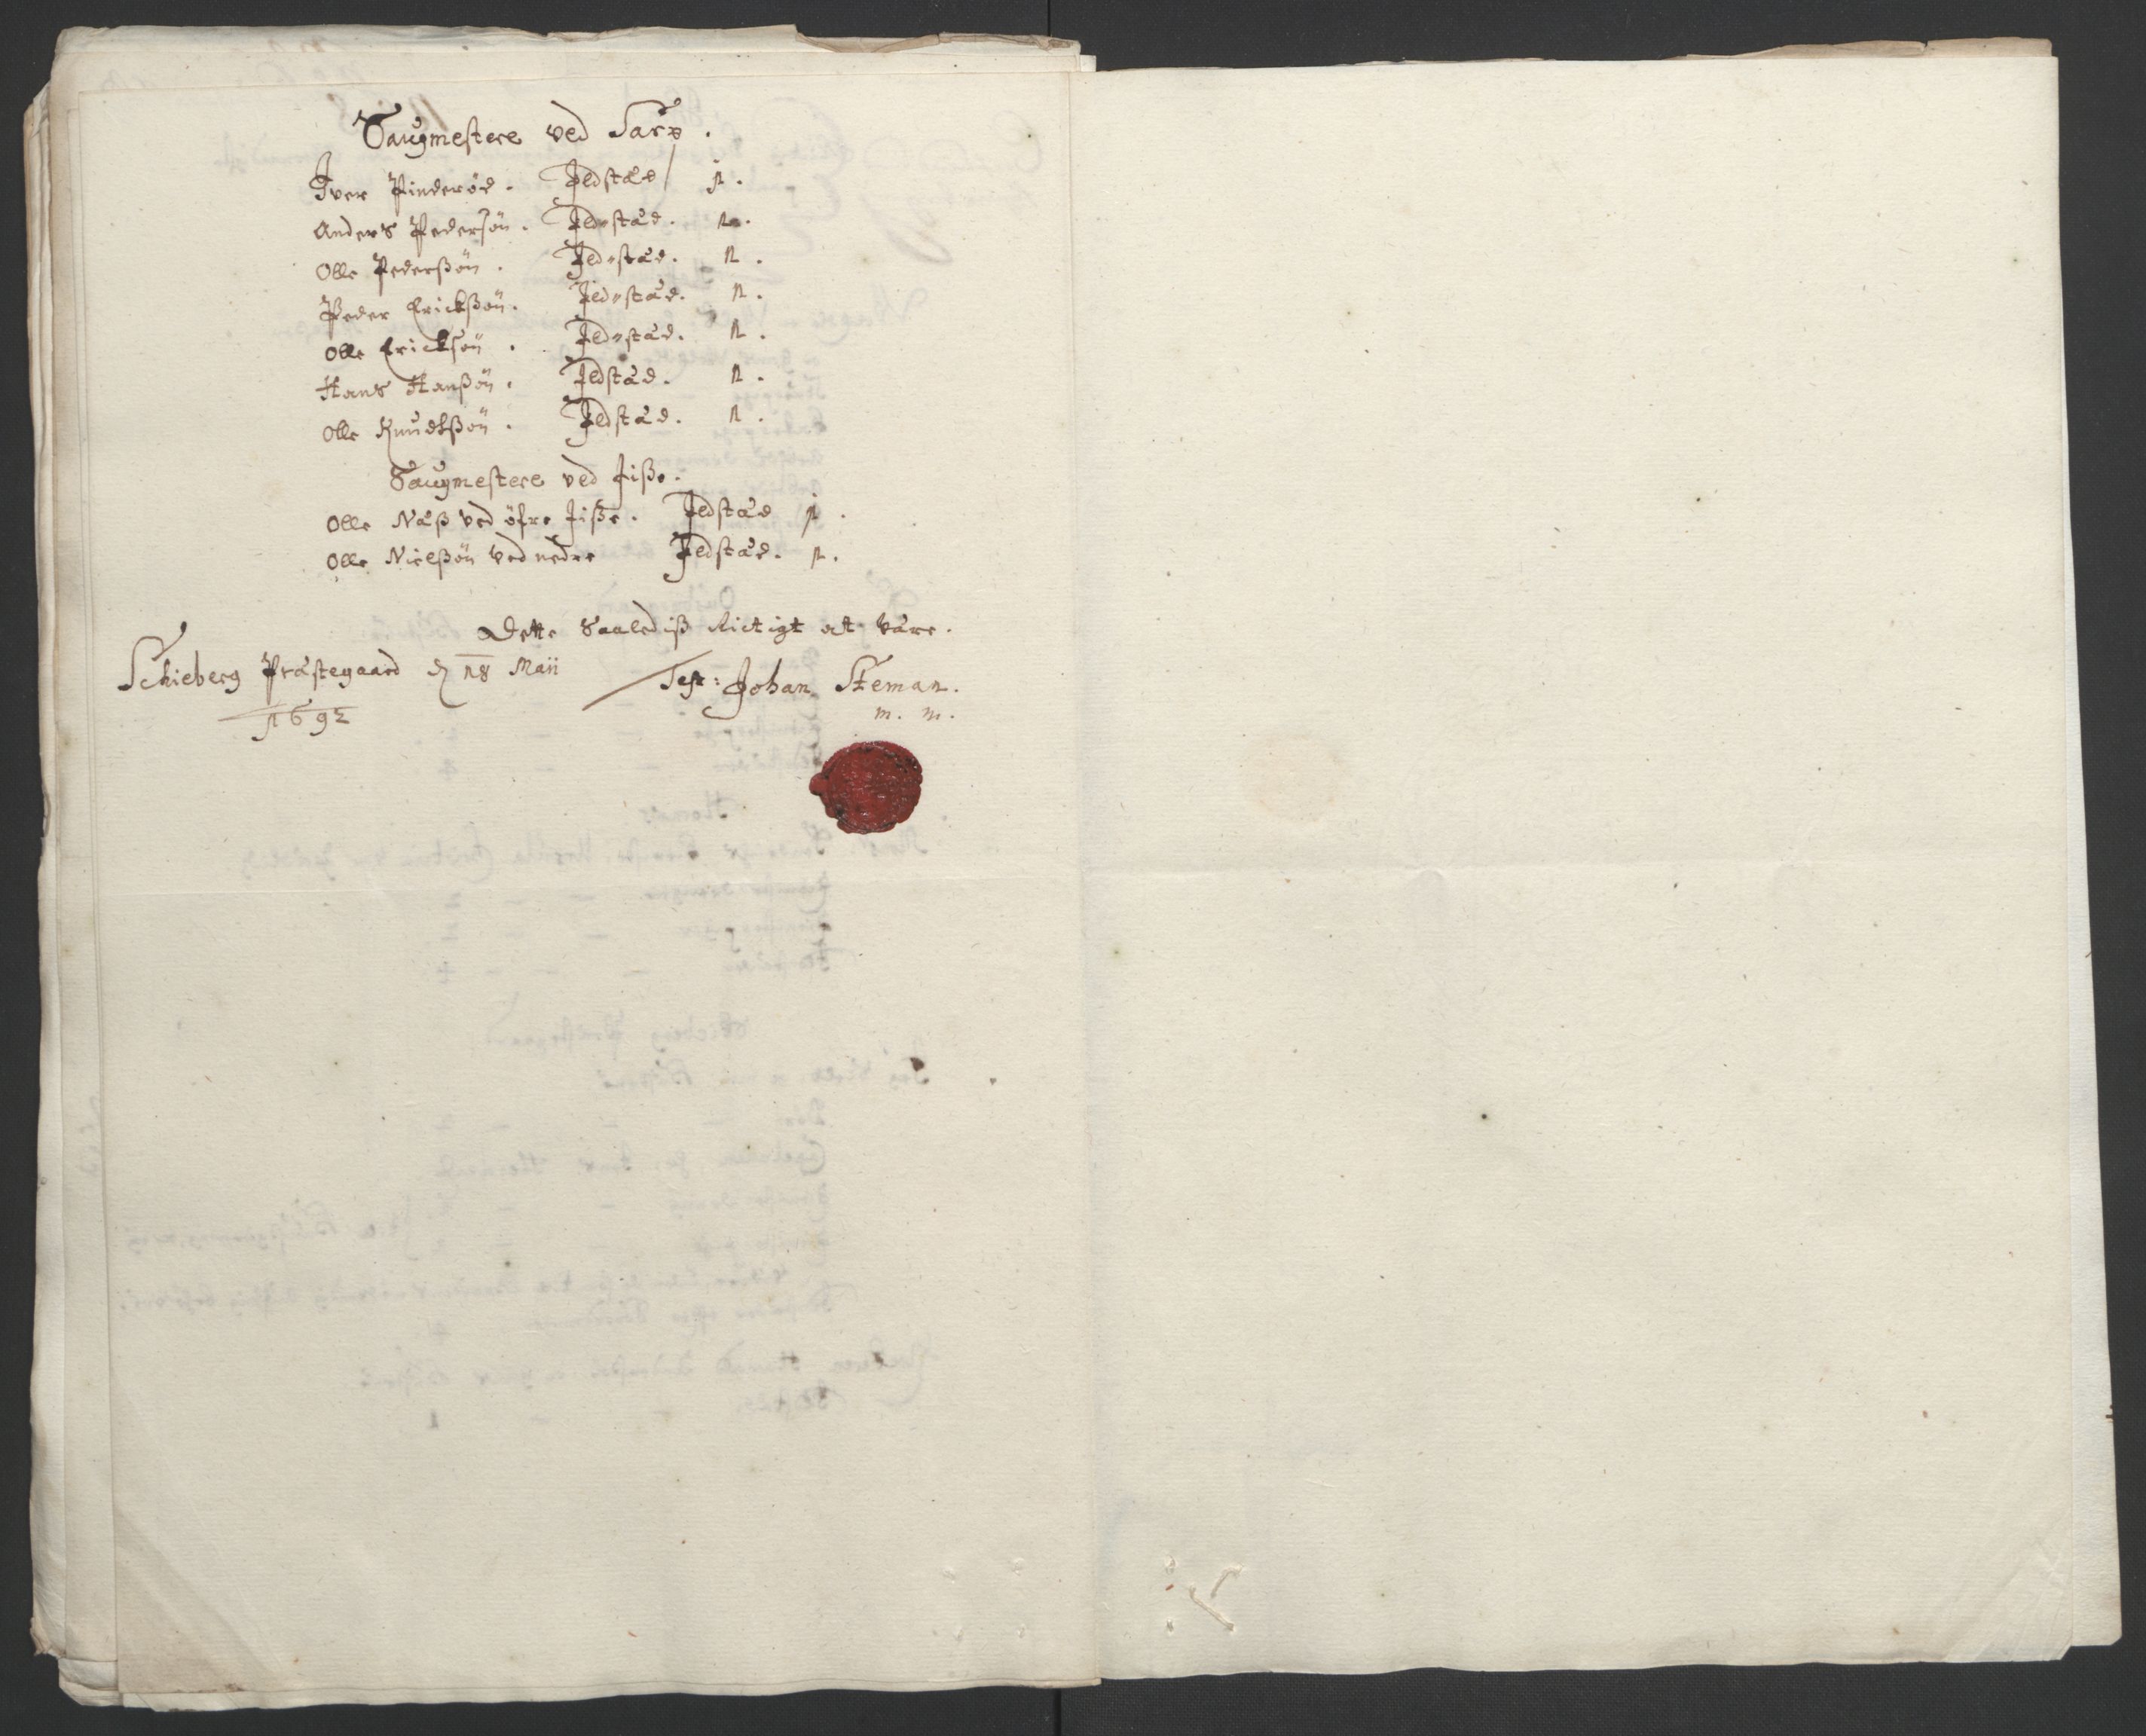 Saugmestere ved Sarp.
Iver Pinderød. Ildstæd 1.
Anders Pedersøn. Ildestæd. 1.
Olle Pederßøn. Ildestæd. 1.
Peder Erickßøn. Ildestæd. 1.
Olle Ericksøn. Ildestæd. 1.
Hans Hanßøn. Ildstæd. 1.
Olle Knudßøn. Ildstæd. 1.
Saugmestere ved Jiße.
Olle Næß ved øfre Jiße. Ildstæd 1.
Olle Nielßøn ved nedre Ildstæd. 1.
Dette Saalediß Rictigt at være.
Schieberg Præstegaard d 18 Maii
1692
Test: Johan Steman.
m. m.